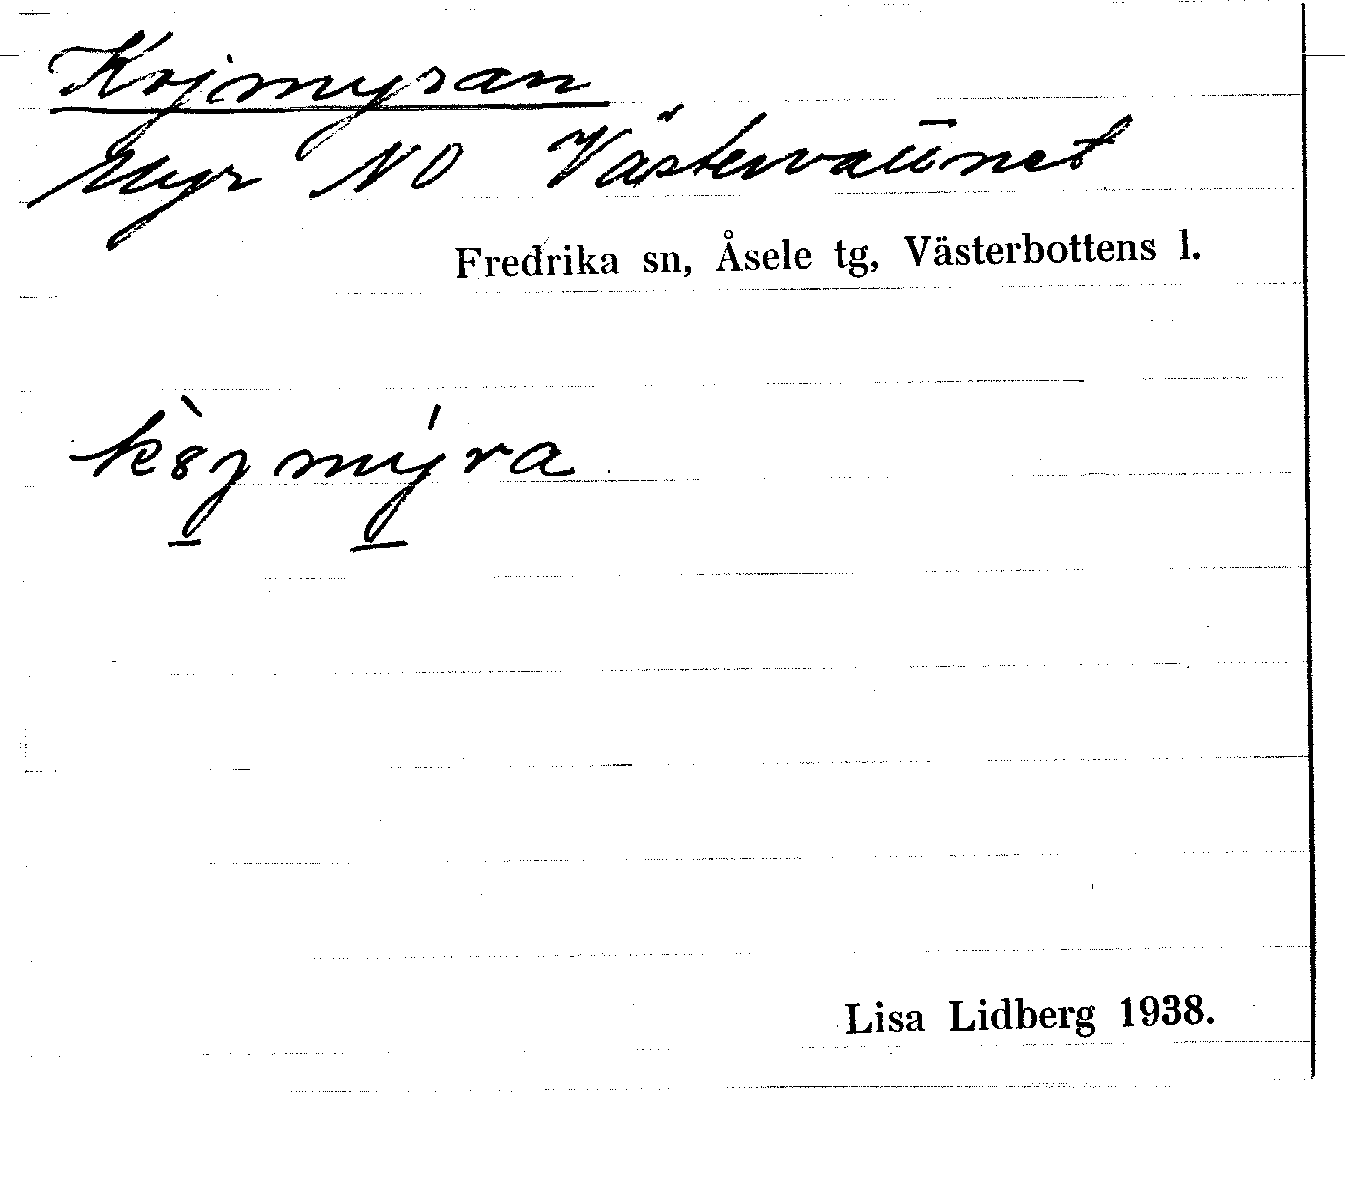 Kojmyran
Myr NO Västervattnet
Fredrika sn, Åsele tg, Västerbottens l.
Lisa Lidberg 1938.